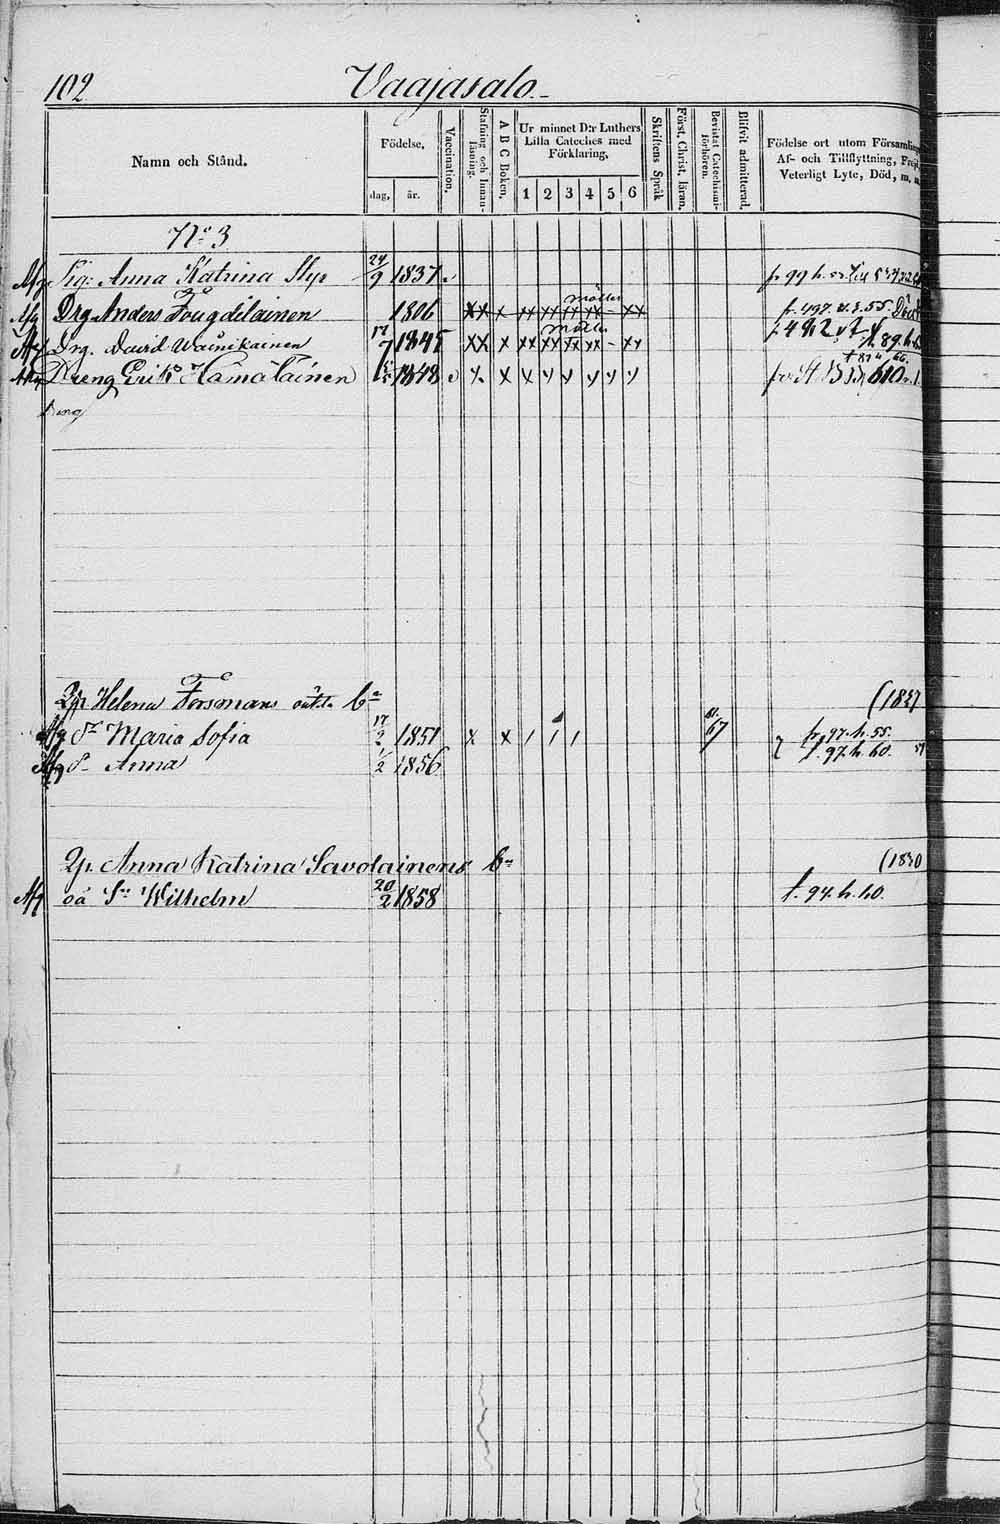 102. Vaajasalo.
Namn och Stånd. Födelse, dag, år. Vaccination, Stafning och Innanläsning. A B C Boken, Ur minnet D:r Luthers Lilla Cateches med Förklaring, 1 2 3 4 5 6 Skriftens Språk Först. Christ. läran, Bevistat Catechismiförhören. Blifvit admitterad, Födelse ort utom Försam Af- och Tillflyttning, Frejd, Veterligt Lyte, Död, m. m.
No 3
Afg Pig: Anna Katrina 24/9 1837 fr 99 h.
Afg Drg Anders Fougdilainen 1806 xx x xx xx xx xx - xx fr. 497. v. 3. 55. Död
Afg Drg. David Wäinikainen 17/7 1845 xx x xx xx xx xx - xx t. 89. h.
Afg Dreng Erik Hämäläinen 1848 x x 610
Dreng
Qp Helena Forsmans oäkta bn (1837
Afg Dr Maria Sofia 17/2 1851 x x / / / 61. 67 fr. 97. h. 55.
Afg D- Anna 1/2 1856 t. 97. h. 60.
Qp. Anna Katrina Savolainens bn (1830
Afg oä Sn Wilhelm 20/2 1858 t. 94. h. 60.